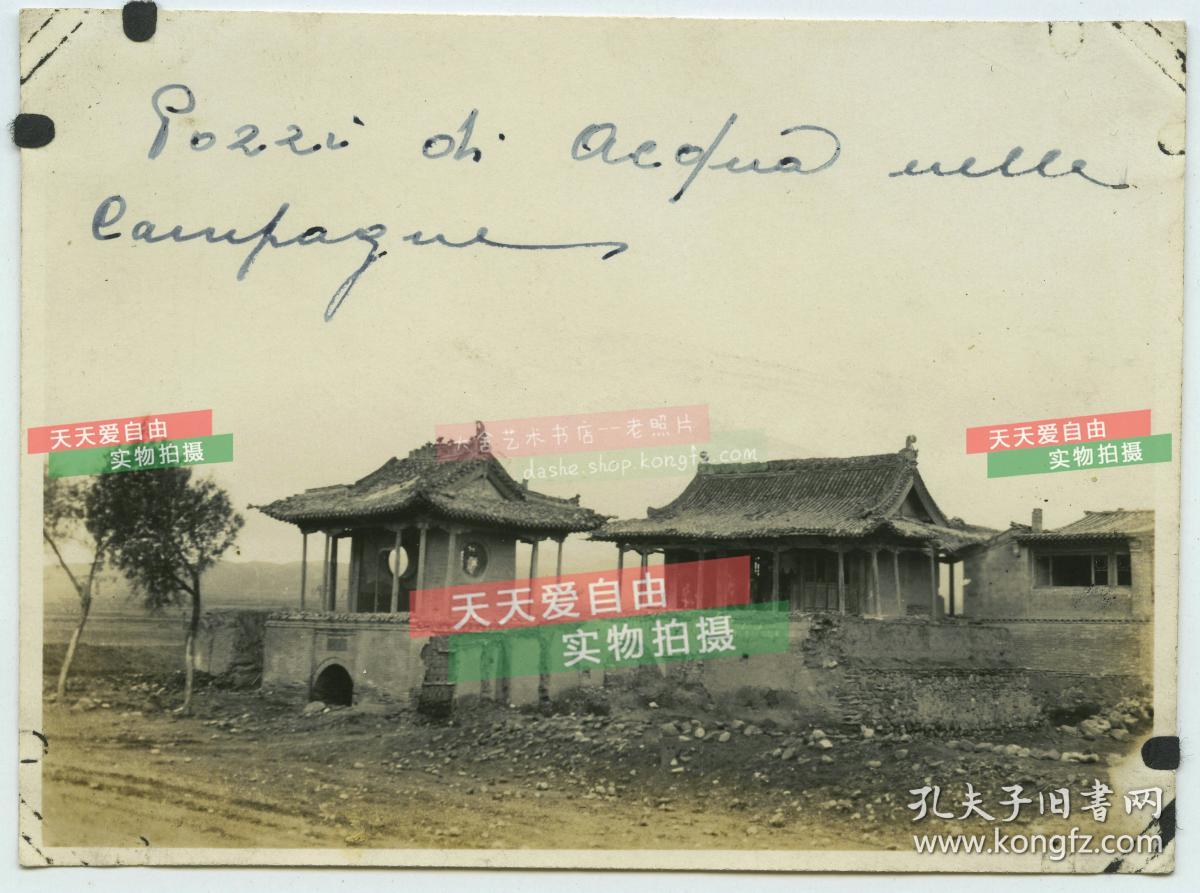 Pozzi di Acqua nelle
Campagne
天天爱自由
实物拍摄
大舍艺术书店--老照片
dashe.shop.kongfz.com
天天爱自由
实物拍摄
天天爱自由
实物拍摄
孔夫子旧书网
www.kongfz.com